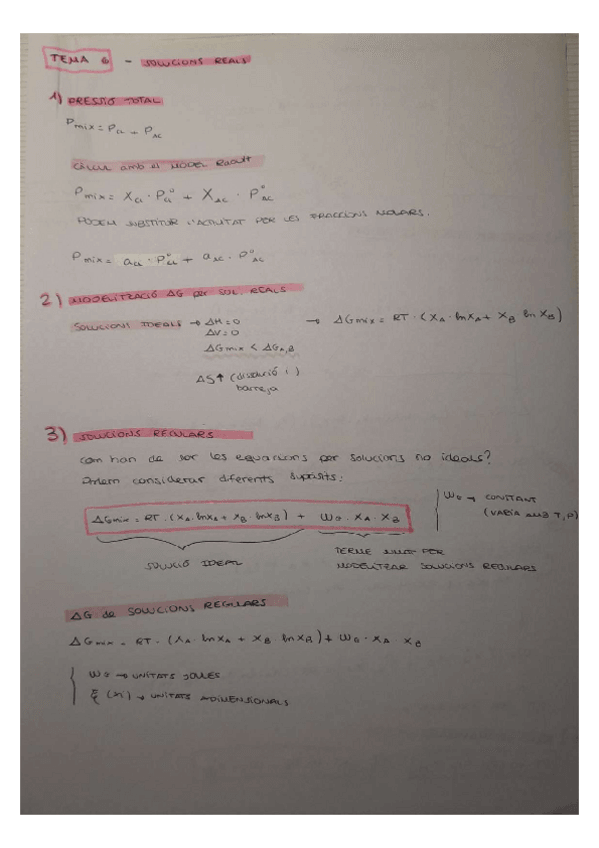 TEMA 6 - SOLUCIONS REALS
1) PRESSIÓ TOTAL
P mix = P CL + P AC
CÀLCUL amb el MODEL Raoult
P mix = X CL · P° CL + X AC · P° AC
PODEM SUBSTITUIR L'ACTIVITAT PER LES FRACCIONS MOLARS.
P mix = a CL · P° CL + a AC · P° AC
2) MODELITZACIÓ ΔG per SOL. REALS
SOLUCIONS IDEALS → ΔH = 0 → ΔG mix = RT · (X A · ln X A + X B ln X B)
ΔV = 0
ΔG mix < ΔG A,B
ΔS↑ (dissolució i)
barreja
3) SOLUCIONS REGULARS
com han de ser les equacions per solucions no ideals?
Podem considerar diferents supòsits:
ΔG mix = RT · (X A · ln X A + X B · ln X B) + W G · X A · X B
W G → CONSTANT
(VARIA AMB T, P)
SOLUCIÓ IDEAL
TERME PER
MODELITZAR SOLUCIONS REGULARS
ΔG de SOLUCIONS REGULARS
ΔG mix = RT · (X A · ln X A + X B ln X B) + W G · X A X B
W G → UNITATS JOULES
→ UNITATS ADIMENSIONALS